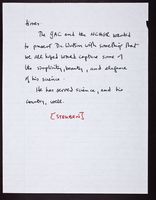 The JAC and the NCHGR wanted
to present Dr. Watson with something that
we all hoped would capture some of
the simplicity, beauty, and elegance
of his science.
He has served science, and his
country, well.
[STEUBEN]